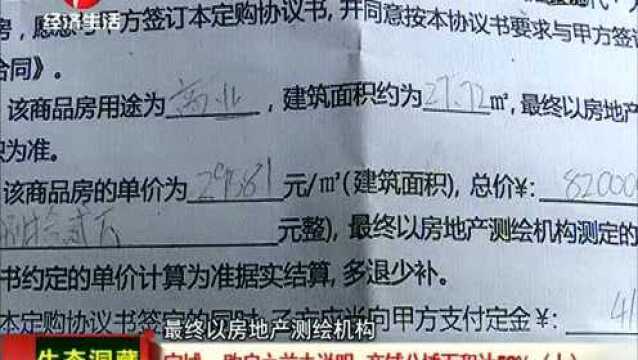 经济生活
房，愿意与甲方签订本定购协议书，并同意按本协议书要求与甲方签订
合同》。
该商品房用途为商业，建筑面积约为27.72㎡，最终以房地产
为准。
该商品房的单价为29581元/㎡(建筑面积)，总价¥：82000
元整)，最终以房地产测绘机构测定的
书约定的单价计算为准据实结算，多退少补。
本定购协议书签定的同时，乙方应当向甲方支付定金¥：41
最终以房地产测绘机构
生态洞藏